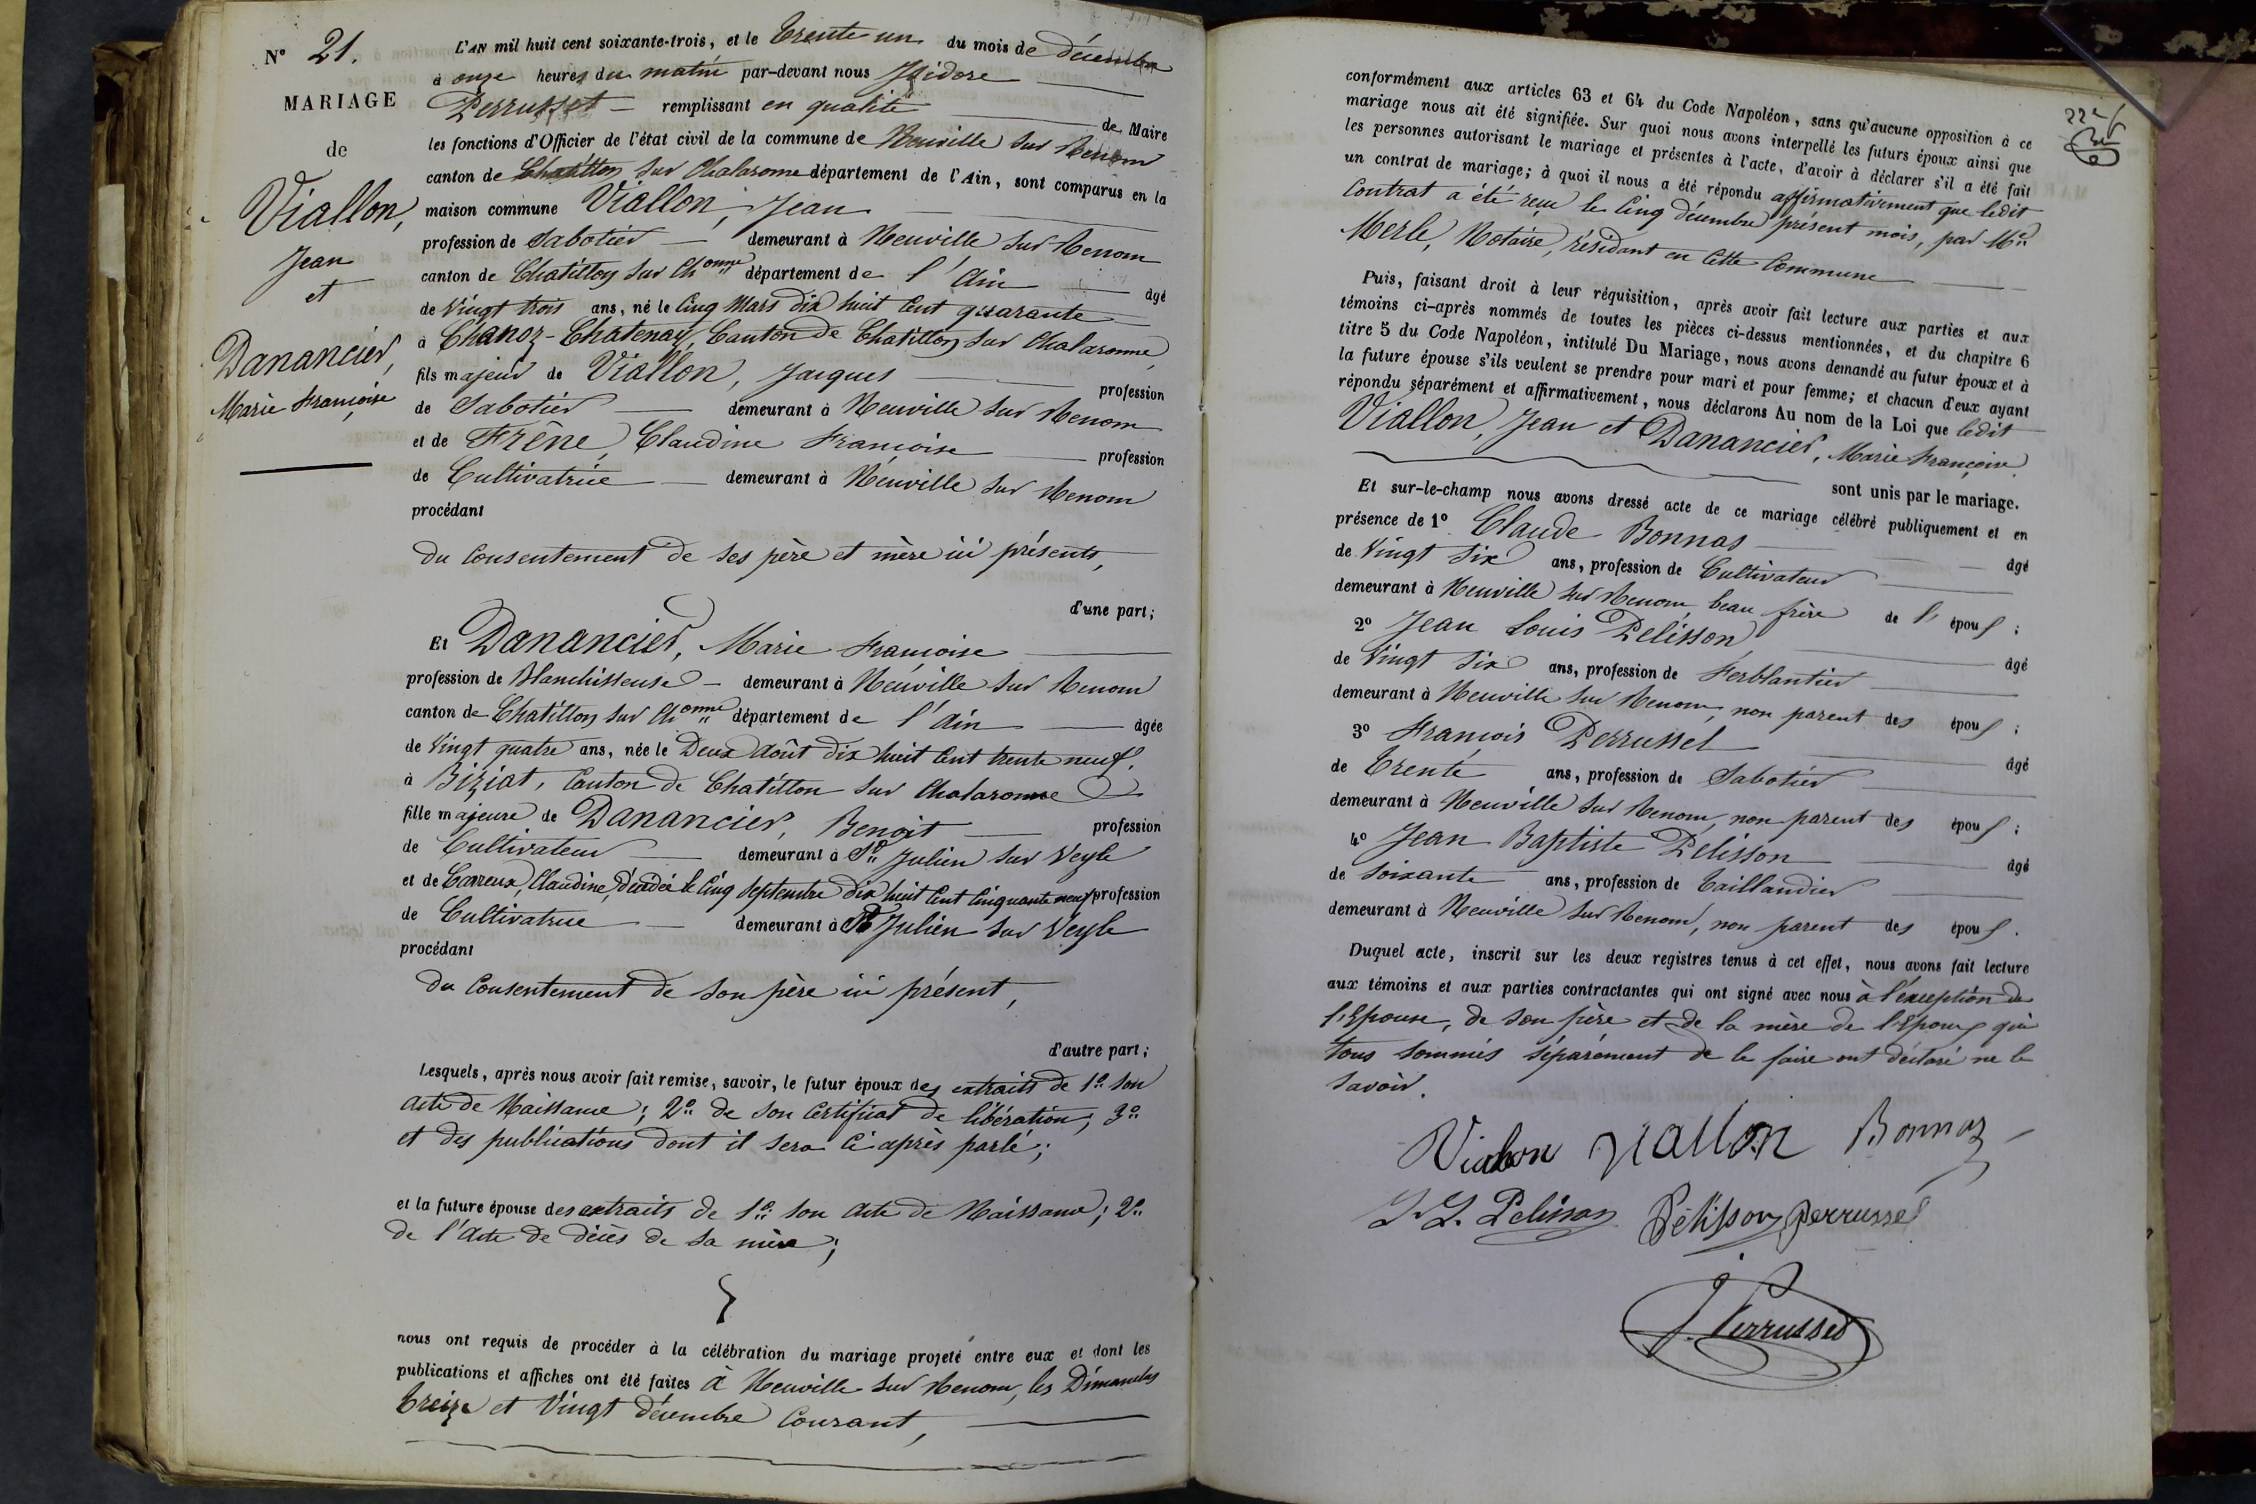 N° 21.
MARIAGE
de
Viallon,
Jean
et
Danancier,
Marie Françoise
L'AN mil huit cent soixante-trois, et le Trente un du mois de décembre
à onze heures du matin par-devant nous Isidore
Perrusset remplissant en qualité de Maire
les fonctions d'Officier de l'état civil de la commune de Neuville sur Renom
canton de Chatillon sur Chalaronne département de l'Ain, sont comparus en la
maison commune Viallon, Jean
profession de Sabotier demeurant à Neuville sur Renom
canton de Chatillon sur Ch.onne département de l'Ain âgé
de Vingt trois ans, né le Cinq Mars dix huit Cent quarante
à Chanoz-Chatenay, Canton de Chatillon sur Chalaronne,
fils majeur de Viallon, Jacques profession
de Sabotier demeurant à Neuville sur Renom
et de Frêne, Claudine Françoise profession
de Cultivatrice demeurant à Neuville sur Renom
procédant
du Consentement de ses père et mère ici présents,
d'une part;
Et Danancier, Marie Françoise
profession de Blanchisseuse demeurant à Neuville sur Renom
canton de Chatillon sur Ch.onne département de l'Ain âgée
de Vingt quatre ans, née le Deux Août dix huit Cent trente neuf.
à Biziat, Canton de Chatillon sur Chalaronne
fille majeure de Danancier, Benoit profession
de Cultivateur demeurant à St Julien sur Veyle
et de Carreux, Claudine, décédée le Cinq Septembre dix huit Cent Cinquante neuf profession
de Cultivatrice demeurant à St Julien sur Veyle
procédant
du Consentement de son père ici présent,
d'autre part;
Lesquels, après nous avoir fait remise, savoir, le futur époux des extraits de 1.° son
Acte de Naissance; 2.° de son Certificat de libération, 3.°
et des publications dont il sera Ci après parlé;
et la future épouse des extraits de 1.° son Acte de Naissance; 2.°
de l'Acte de décès de sa mère;
nous ont requis de procéder à la célébration du mariage projeté entre eux et dont les
publications et affiches ont été faites à Neuville sur Renom, les Dimanches
Treize et Vingt décembre Courant,
conformément aux articles 63 et 64 du Code Napoléon, sans qu'aucune opposition à ce
mariage nous ait été signifiée. Sur quoi nous avons interpellé les futurs époux ainsi que
les personnes autorisant le mariage et présentes à l'acte, d'avoir à déclarer s'il a été fait
un contrat de mariage; à quoi il nous a été répondu affirmativement que ledit
Contrat a été reçu le Cinq décembre présent mois, par Me
Merle, Notaire, résidant en Cette Commune
Puis, faisant droit à leur réquisition, après avoir fait lecture aux parties et aux
témoins ci-après nommés de toutes les pièces ci-dessus mentionnées, et du chapitre 6
titre 5 du Code Napoléon, intitulé Du Mariage, nous avons demandé au futur époux et à
la future épouse s'ils veulent se prendre pour mari et pour femme; et chacun d'eux ayant
répondu séparément et affirmativement, nous déclarons Au nom de la Loi que ledit
Viallon, Jean et Danancier, Marie Françoise
sont unis par le mariage.
Et sur-le-champ nous avons dressé acte de ce mariage célébré publiquement et en
présence de 1° Claude Bonnas âgé
de Vingt Six ans, profession de Cultivateur
demeurant à Neuville sur Renom, beau frère de l' époux;
2° Jean Louis Pelisson âgé
de Vingt Six ans, profession de Ferblantier
demeurant à Neuville sur Renom, non parent des époux;
3° François Perrussel âgé
de Trente ans, profession de Sabotier
demeurant à Neuville sur Renom, non parent des époux;
4° Jean Baptiste Pelisson âgé
de Soixante ans, profession de Taillandier
demeurant à Neuville sur Renom, non parent des époux.
Duquel acte, inscrit sur les deux registres tenus à cet effet, nous avons fait lecture
aux témoins et aux parties contractantes qui ont signé avec nous à l'exception de
l'Epouse, de son père et de la mère de l'Epoux qui
tous sommés séparément de le faire ont déclaré ne le
savoir.
Viallon Viallon Bonnaz
J. L. Pelisson Pélisson Perrussel
J. Perrusset